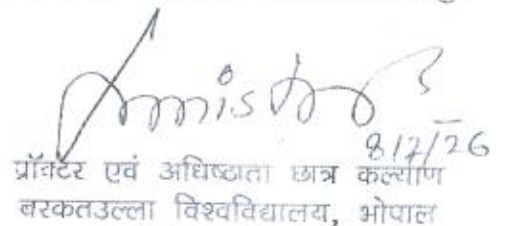 8/7/26
प्रॉक्टर एवं अधिष्ठाता छात्र कल्याण
बरकतउल्ला विश्वविद्यालय, भोपाल